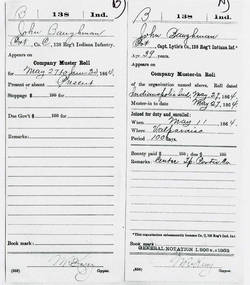 B 138 Ind.
John Baughman
Pvt, Co. C, 138 Reg't Indiana Infantry.
Appears on
Company Muster Roll
for May 27 to June 24, 1864.
Present or absent Present
Stoppage, $ 100 for
Due Gov't, $ 100 for
Remarks:
Book mark:
(858) Copyist.
B 138 Ind.
John Baughman
Pvt, Capt. Lytle's Co. 138 Reg't Indiana Inf.*
Age 39 years.
Appears on
Company Muster-in Roll
of the organization named above. Roll dated
Indianapolis Ind. May 27, 1864.
Muster-in to date May 27, 1864.
Joined for duty and enrolled:
When May 11, 1864.
Where Valparaiso
Period 100 days.
Bounty paid $ 100; due $ 100
Remarks: Centre Tp Porter Co
*This organization subsequently became Co. C, 138 Reg't Ind. Inf.
Book mark:
GENERAL NOTATION
(356) Copyist.